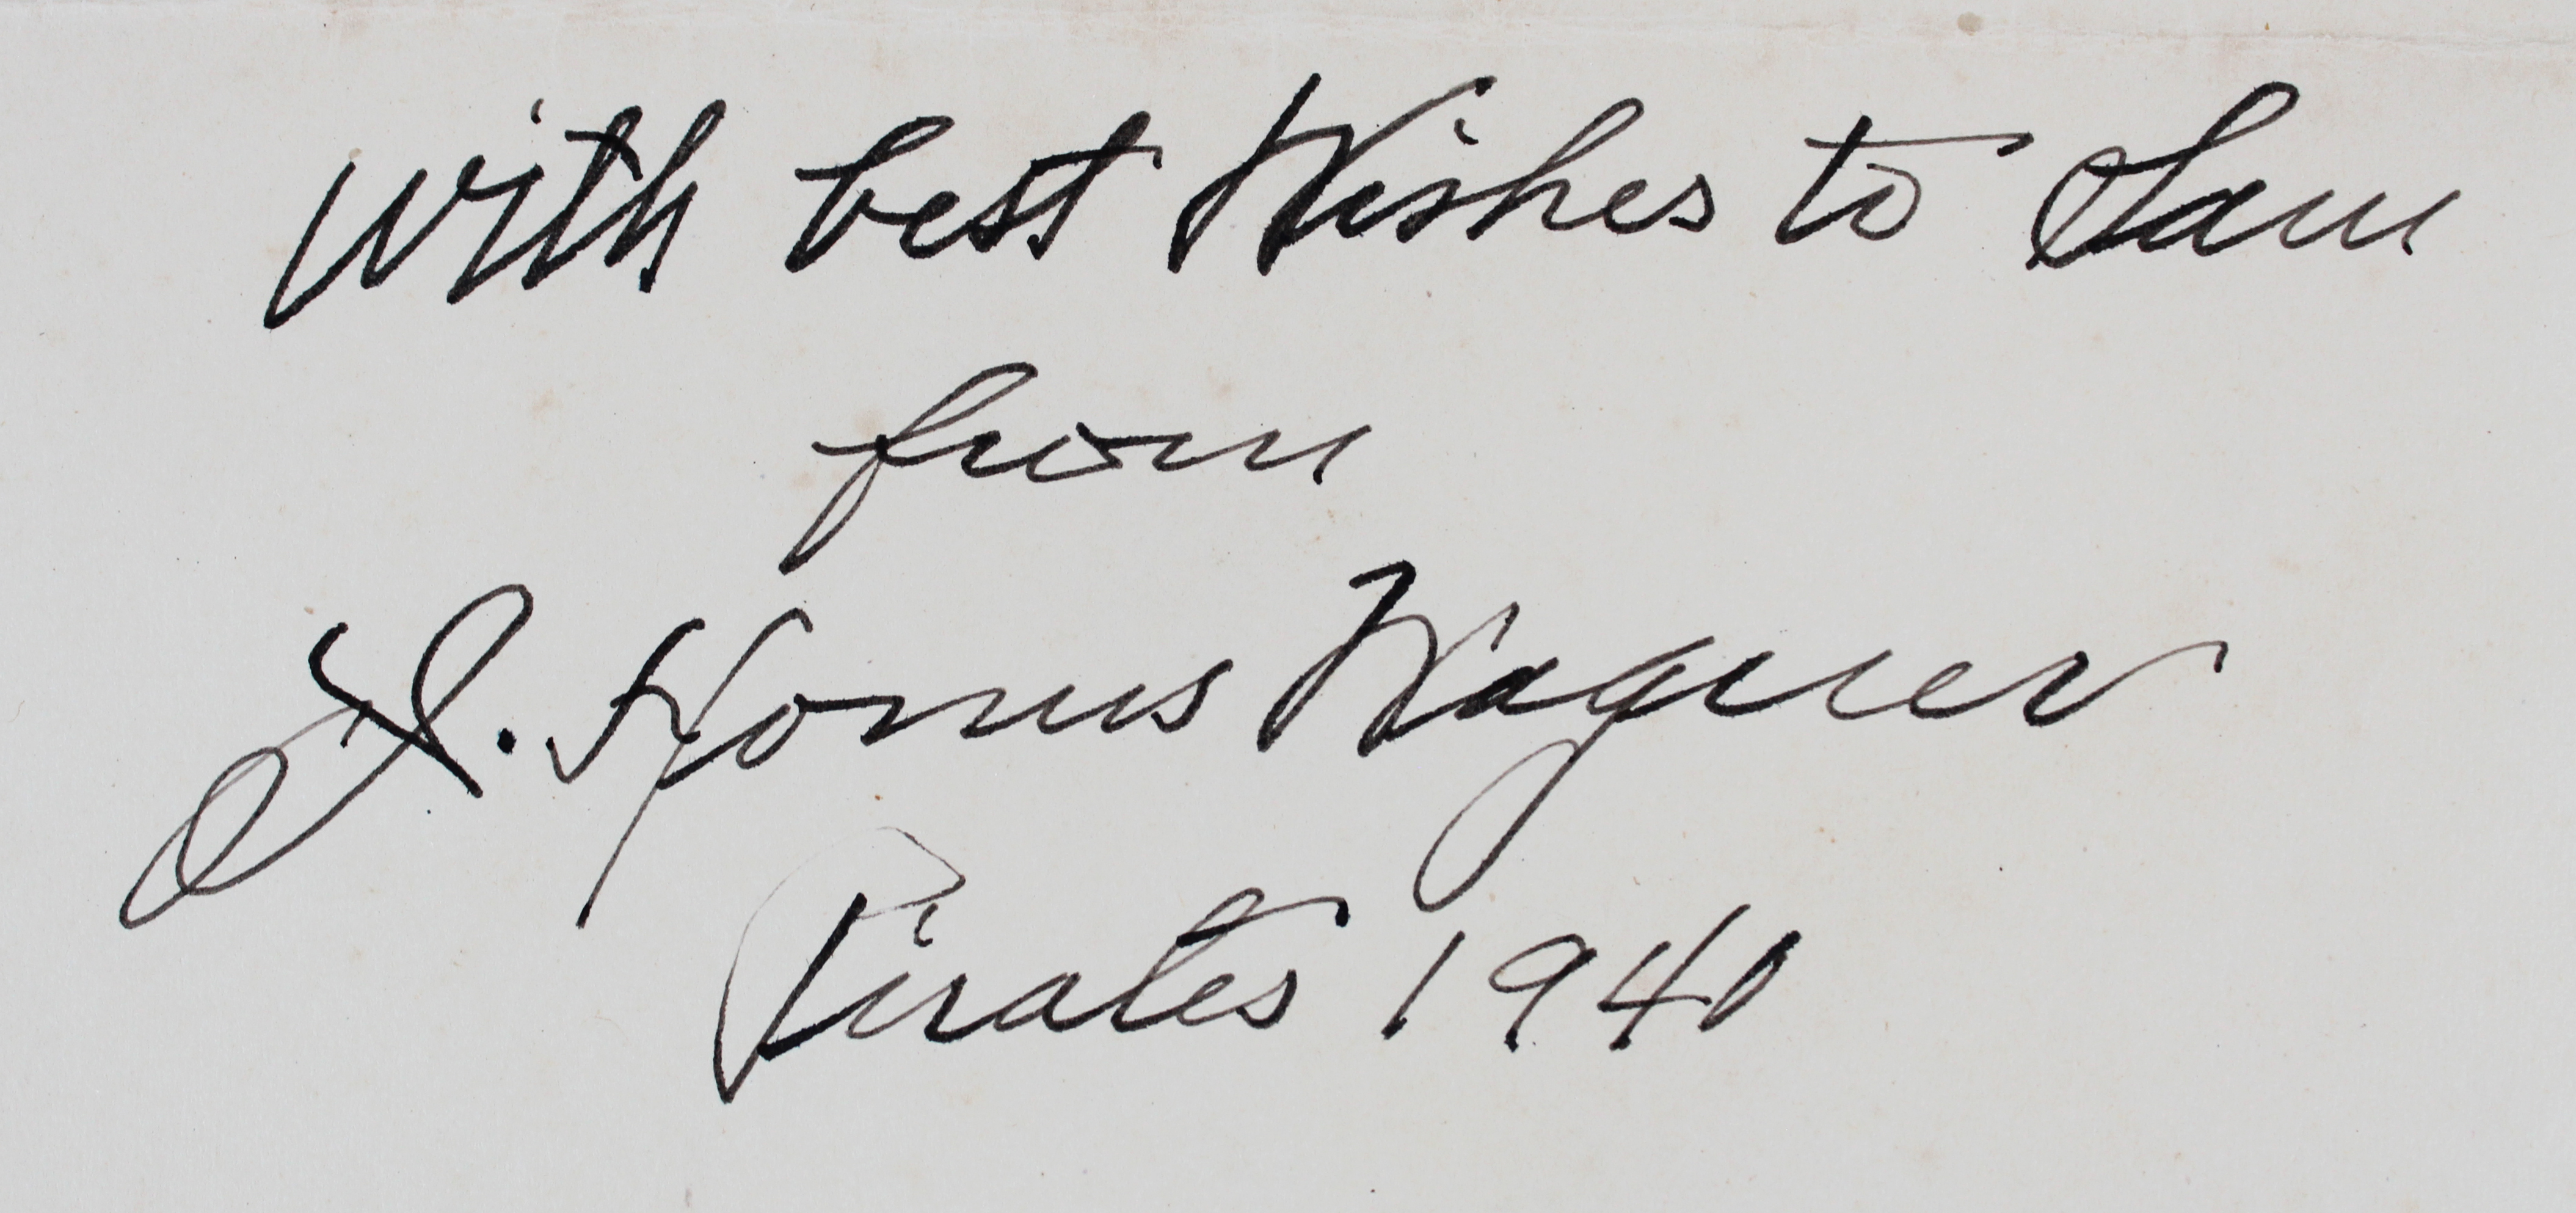 With best Wishes to Sam
from
J. Honus Wagner
Pirates 1940